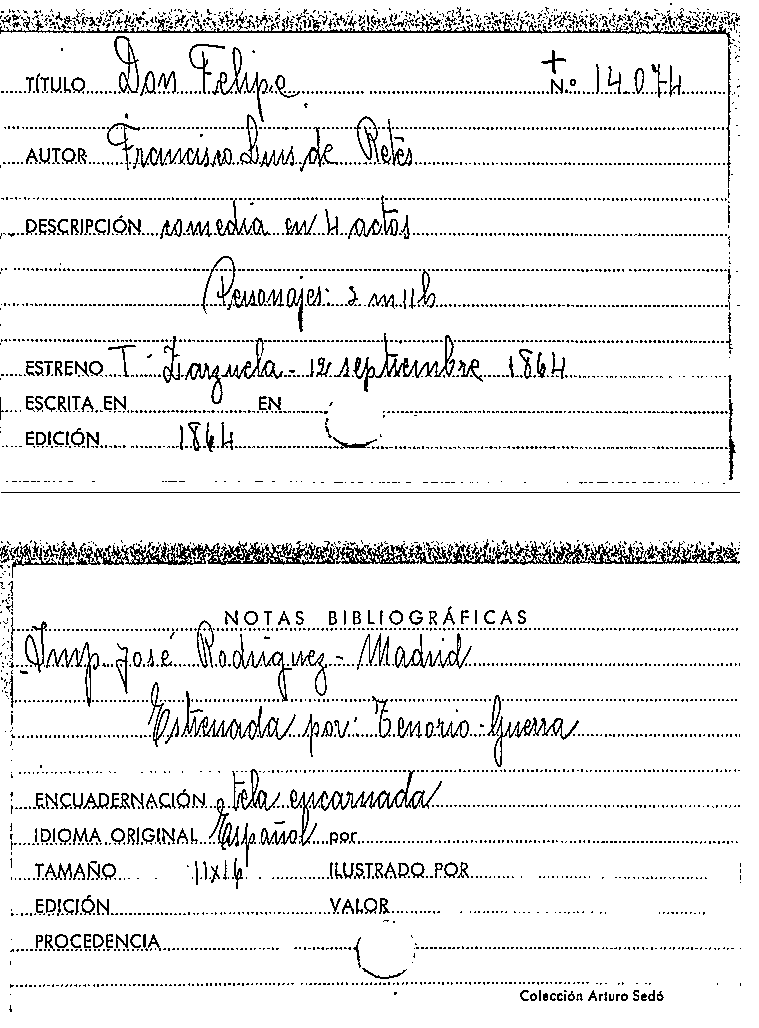 TÍTULO Don Felipe + N.º 14074
AUTOR Francisco Luis de Retes
DESCRIPCIÓN comedia en 4 actos
Personajes: 2 m 11 h
ESTRENO T. Zarzuela - 12 septiembre 1864
ESCRITA EN EN
EDICIÓN 1864
NOTAS BIBLIOGRÁFICAS
Imp. José Rodríguez - Madrid
Estrenada por: Tenorio - Guerra
ENCUADERNACIÓN tela encarnada
IDIOMA ORIGINAL Español por
TAMAÑO 11x16 ILUSTRADO POR
EDICIÓN VALOR
PROCEDENCIA
Colección Arturo Sedó